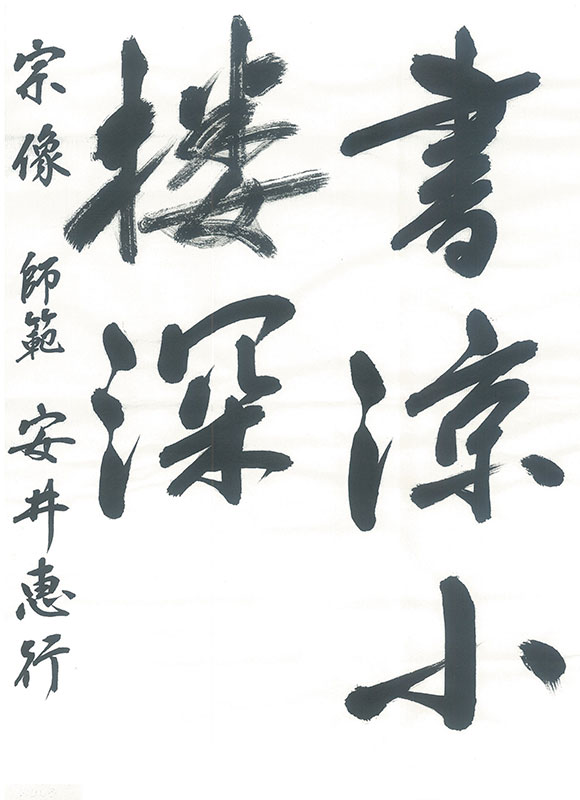 書涼小
楼深
宗像 師範 安井惠行